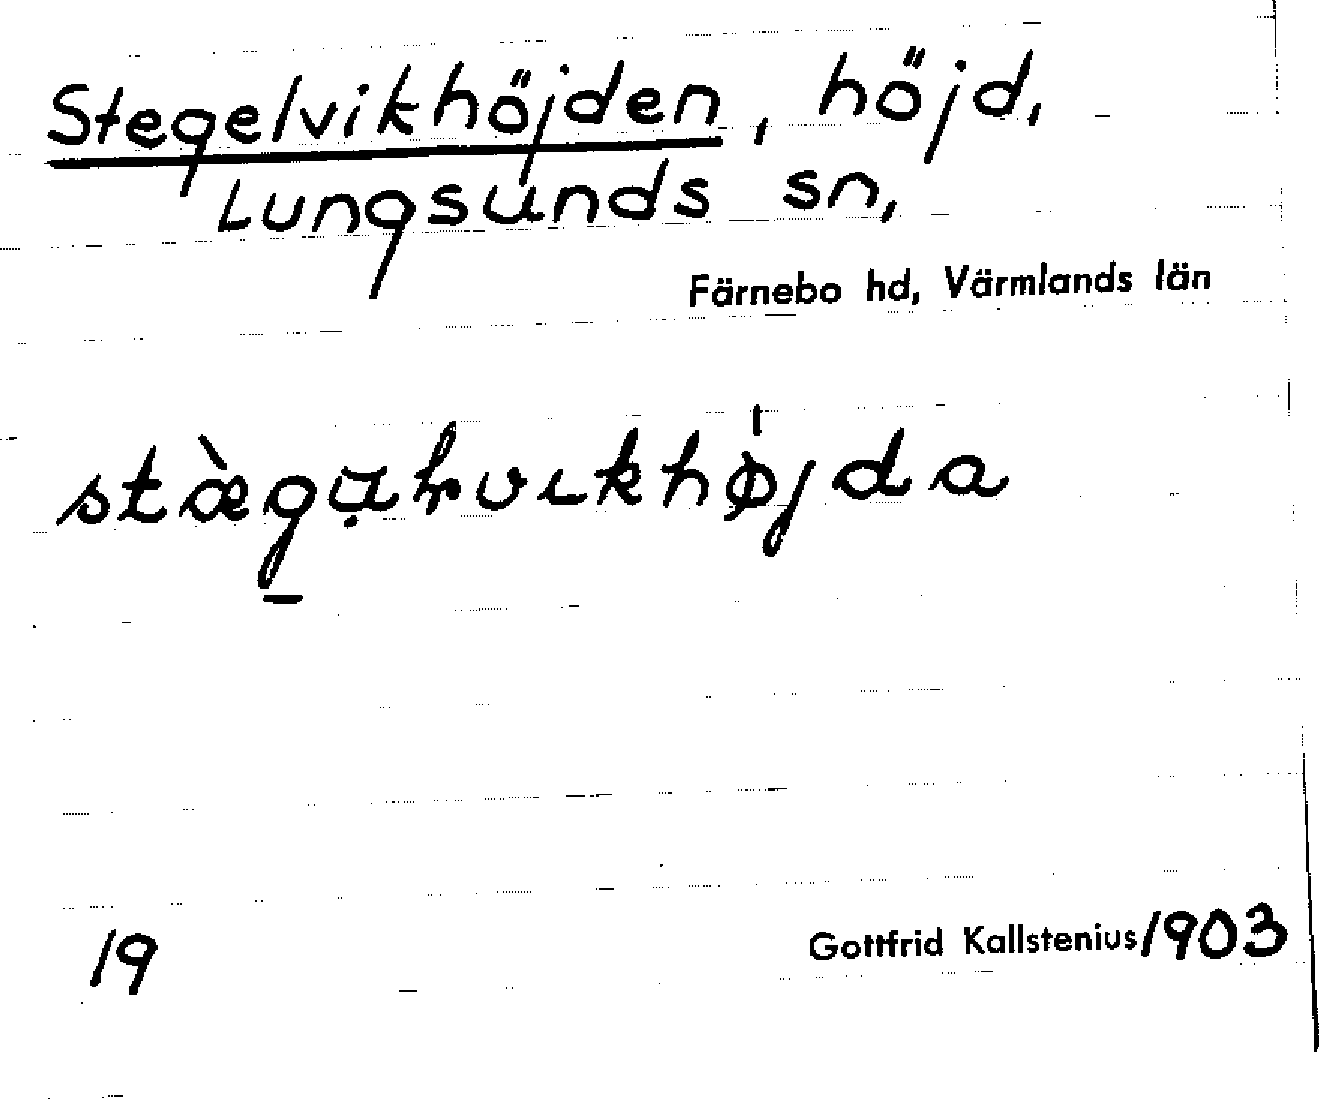 Stegelvikhöjden, höjd,
Lungsunds sn,
Färnebo hd, Värmlands län
19
Gottfrid Kallstenius/1903